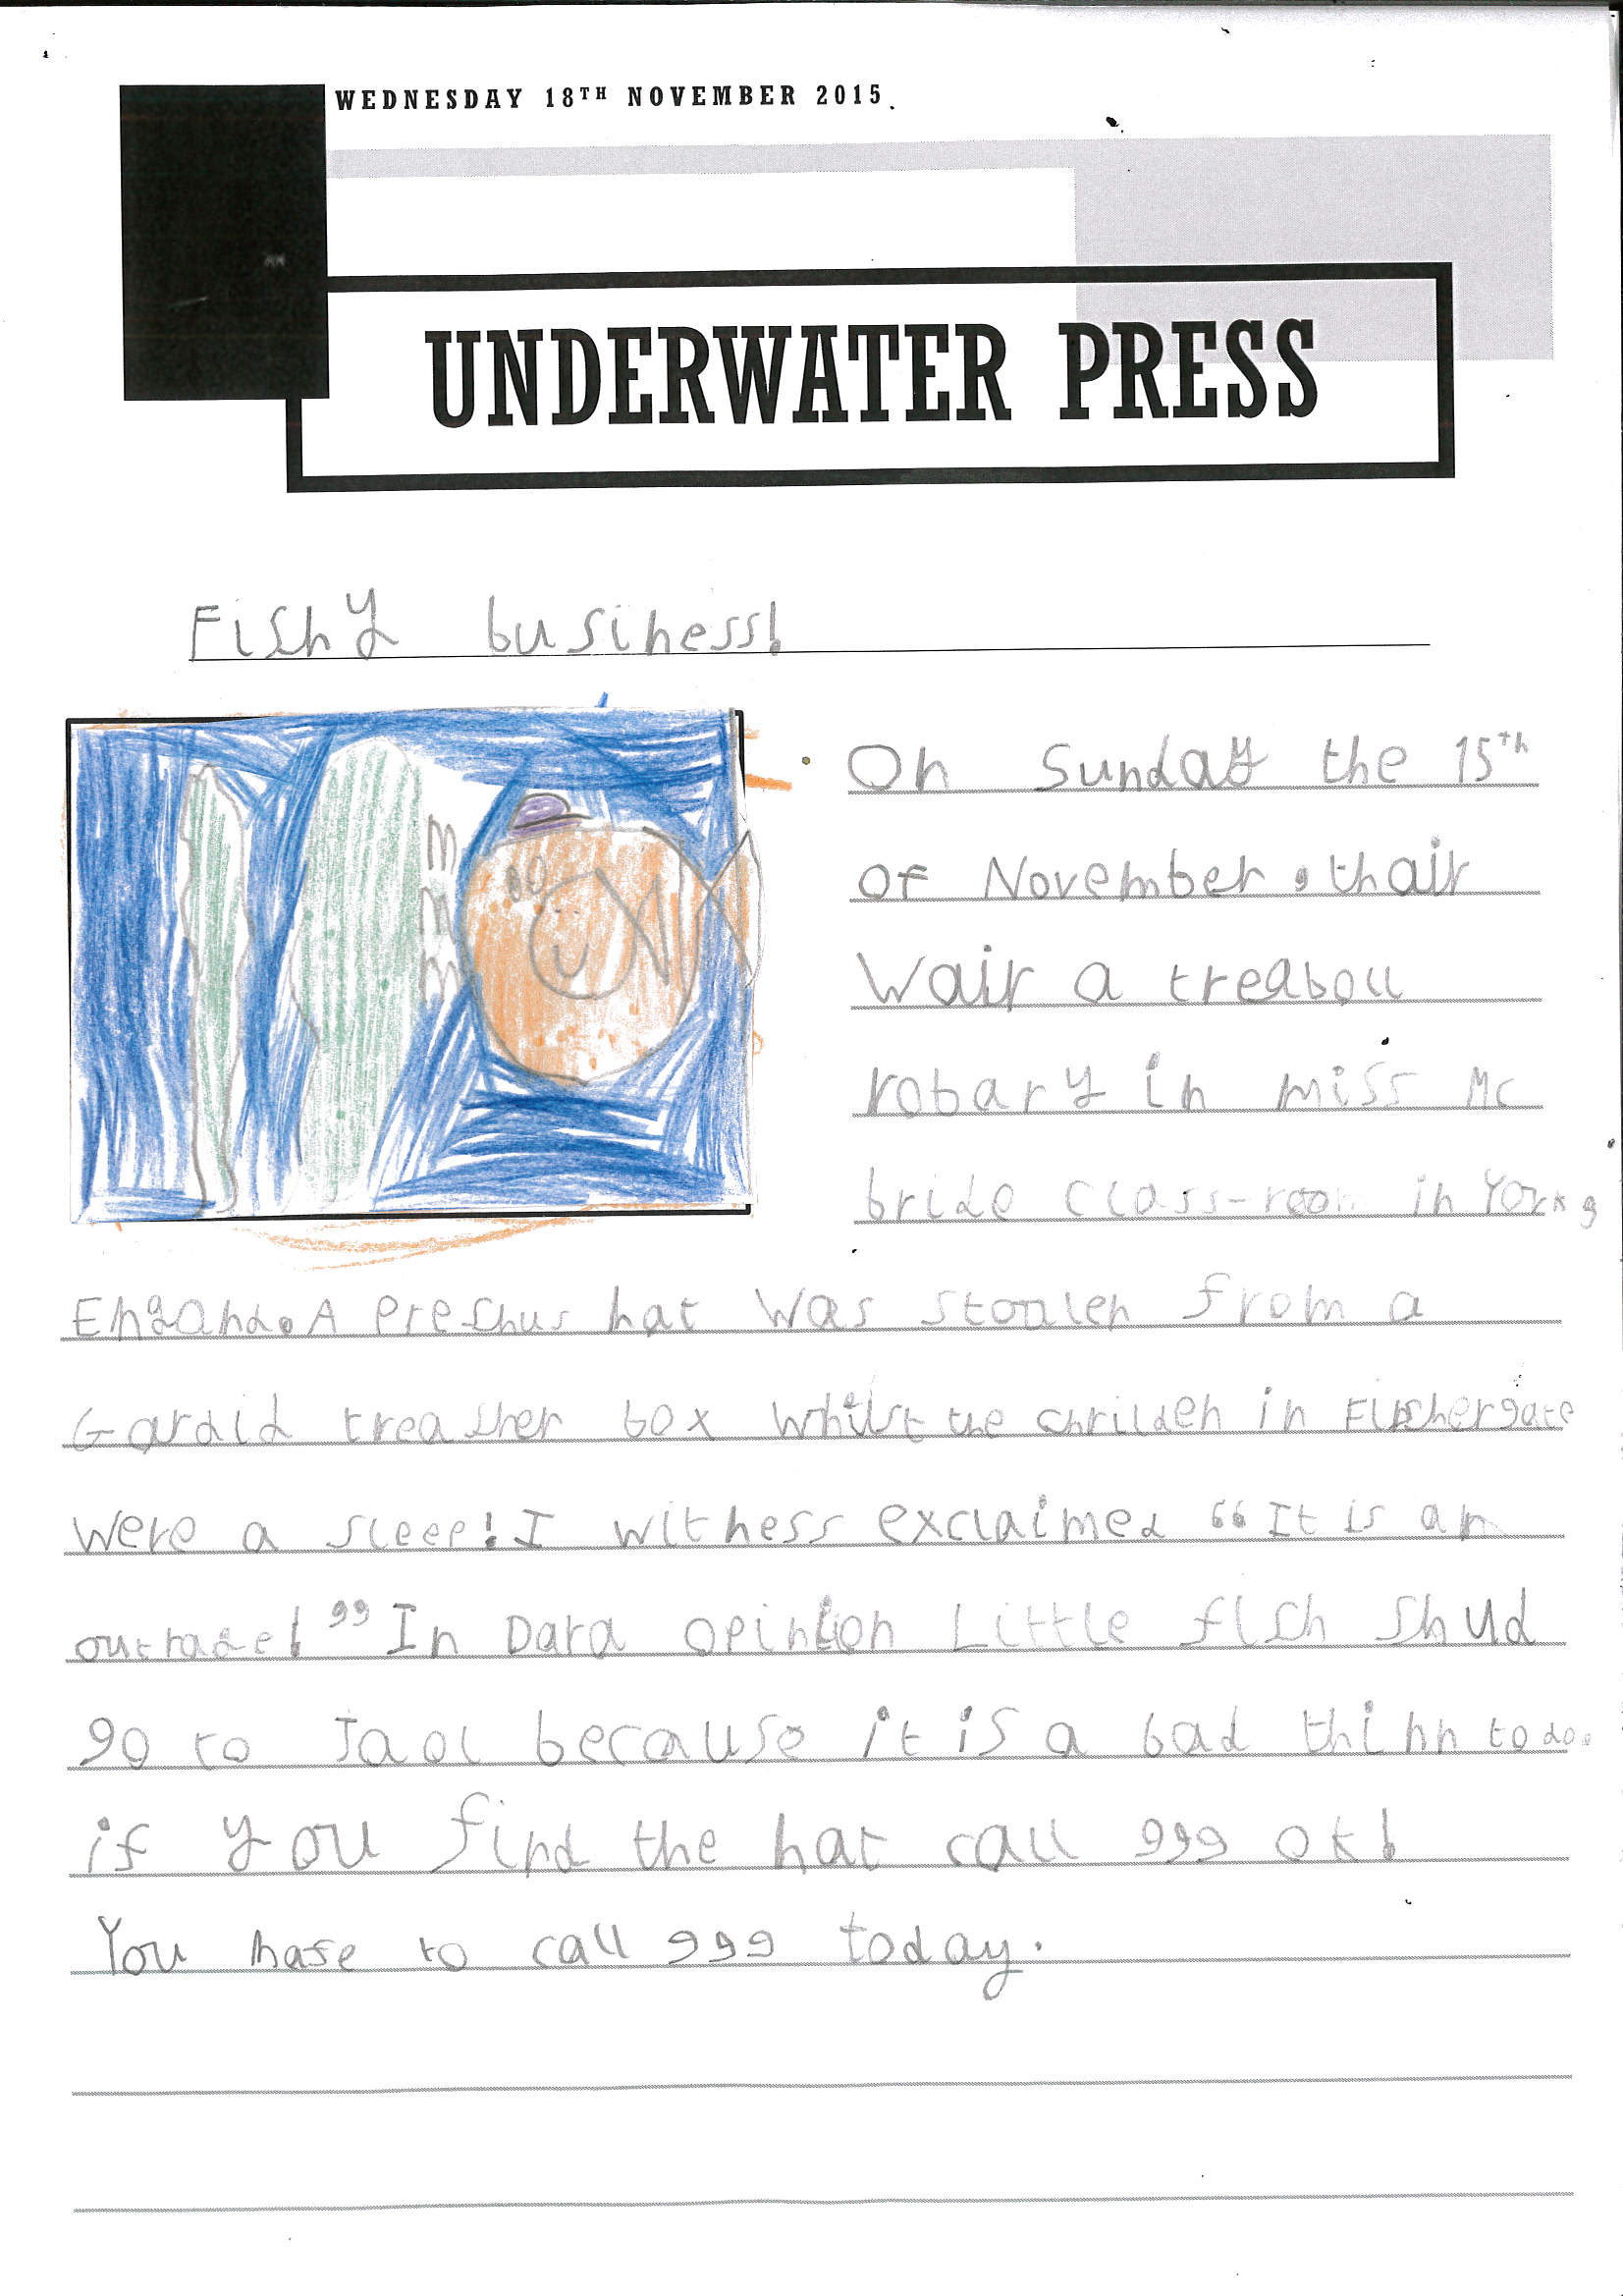 WEDNESDAY 18TH NOVEMBER 2015.
UNDERWATER PRESS
Fishy business!
On Sunday the 15th
of November, thair
wair a treaball
robary in miss Mc
bride class-room in York,
Engand. A preshus hat was stoalen from a
Gardid treasher box whilst the chrilden in Fishergate
were a sleep! I witness exclaimed "It is an
outrage!" In Dara opinion Little fish shud
go to Jaol because it is a bad thinn to do.
if you find the hat call 999 ok!
You hafe to call 999 today.